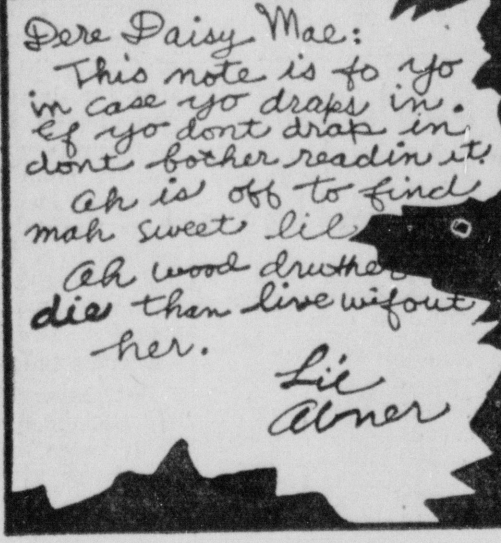 Dere Daisy Mae:
This note is fo yo
in case yo draps in.
Ef yo dont drap in
dont bother readin it.
Ah is off to find
mah sweet lil
Ah wood druther
die than live wifout
her.
Li'l
Abner